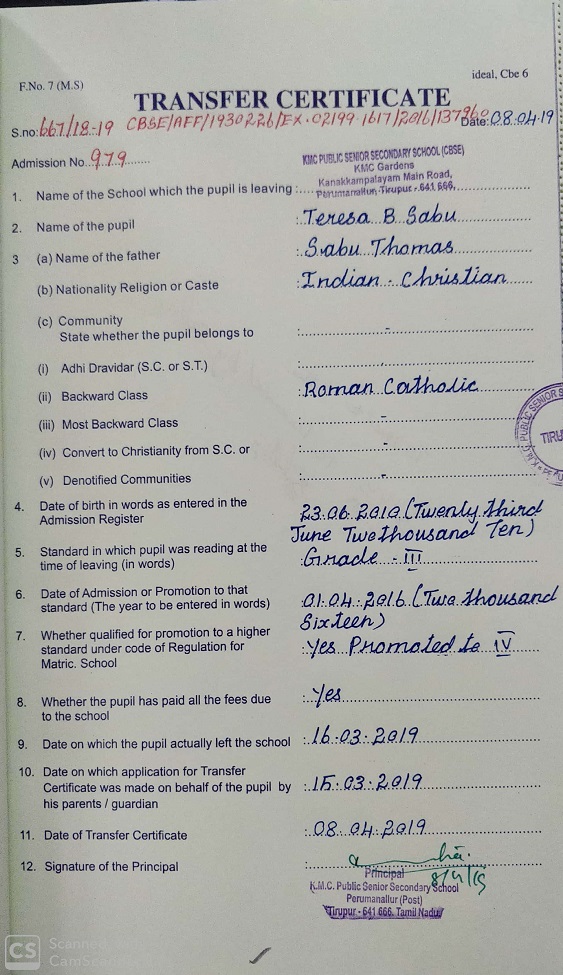 F.No. 7 (M.S)
ideal, Cbe 6
TRANSFER CERTIFICATE
S.no: 667/18-19 CBSE/AFF/1930226/EX-02199-1617/2016/137960 Date: 08.04.19
Admission No. 979
KMC PUBLIC SENIOR SECONDARY SCHOOL (CBSE)
KMC Gardens
Kanakkampalayam Main Road,
Perumanallur, Tirupur - 641 666.
1. Name of the School which the pupil is leaving :
2. Name of the pupil : Teresa B Sabu
3 (a) Name of the father : Sabu Thomas
(b) Nationality Religion or Caste : Indian - Christian
(c) Community
State whether the pupil belongs to : -
(i) Adhi Dravidar (S.C. or S.T.) : -
(ii) Backward Class : Roman Catholic
(iii) Most Backward Class : -
(iv) Convert to Christianity from S.C. or : -
(v) Denotified Communities : -
4. Date of birth in words as entered in the
Admission Register
23.06.2010 (Twenty third
June Two thousand Ten)
5. Standard in which pupil was reading at the
time of leaving (in words) : Grade - III
6. Date of Admission or Promotion to that
standard (The year to be entered in words)
01.04.2016 (Two thousand
Sixteen)
7. Whether qualified for promotion to a higher
standard under code of Regulation for : Yes Promoted to IV
Matric. School
8. Whether the pupil has paid all the fees due : Yes
to the school
9. Date on which the pupil actually left the school : 16.03.2019
10. Date on which application for Transfer
Certificate was made on behalf of the pupil by : 15.03.2019
his parents / guardian
11. Date of Transfer Certificate : 08.04.2019
12. Signature of the Principal :
Principal
K.M.C. Public Senior Secondary School
Perumanallur (Post)
Tirupur - 641 666. Tamil Nadu
CS Scanned
CamSca